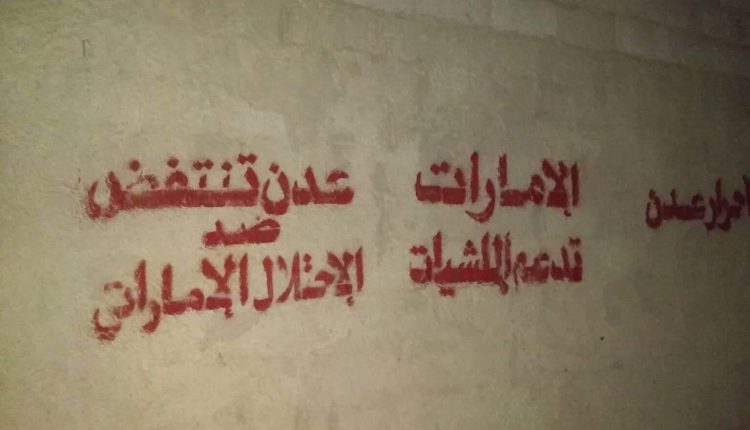 احرار عدن
الإمارات
تدعم الملشيات
عدن تنتفض
ضد
الإحتلال الإماراتي